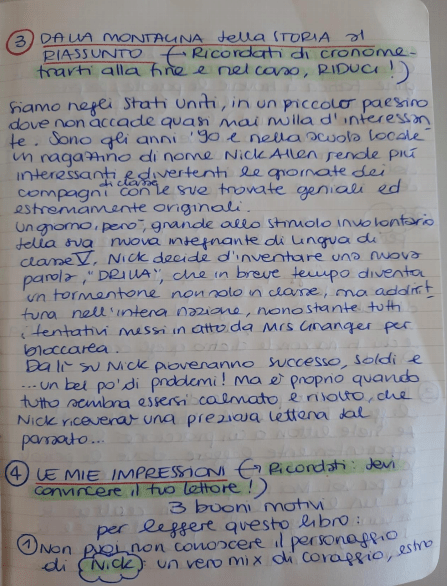 ③ DALLA MONTAGNA della STORIA al
RIASSUNTO (→ Ricordati di cronome-
trarti alla fine e nel caso, RIDUCI!)
Siamo negli Stati Uniti, in un piccolo paesino
dove non accade quasi mai nulla d'interessan
te. Sono gli anni '90 e nella scuola locale
un ragazzino di nome Nick Allen rende più
interessanti e divertenti le giornate dei
compagni di classe con le sue trovate geniali ed
estremamente originali.
Un giorno, però, grande allo stimolo involontario
della sua nuova insegnante di lingua di
classe V, Nick decide d'inventare una nuova
parola, "DRILLA", che in breve tempo diventa
un tormentone non solo in classe, ma addirit-
tura nell'intera nazione, nonostante tutti
i tentativi messi in atto da Mrs Granger per
bloccarla.
Da lì su Nick pioveranno successo, soldi e
...un bel po' di problemi! Ma è proprio quando
tutto sembra essersi calmato e risolto, che
Nick riceverà una preziosa lettera dal
passato...
④ LE MIE IMPRESSIONI (→ Ricordati: devi
convincere il tuo lettore!)
3 buoni motivi
per leggere questo libro:
① Non puoi non conoscere il personaggio
di Nick: un vero mix di coraggio, estro